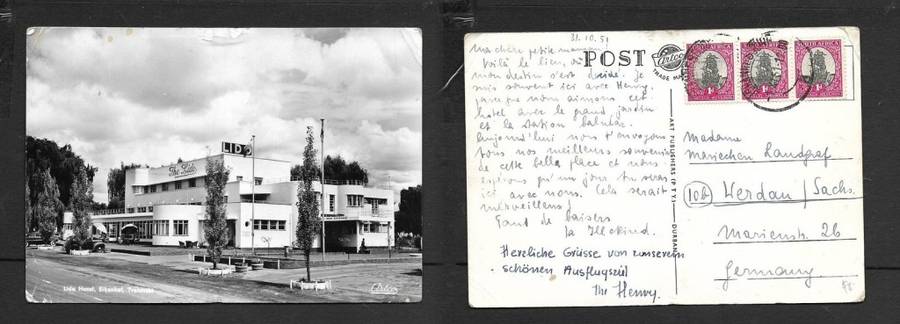 LIDO
The Lido
Lido Hotel, Eikenhof, Transvaal
Artco
31.10.51
Ma chère petite maman!
Voilà le lieu, où
mon destin s'est décidé. Je
suis souvent ici avec Henry,
parce que nous aimons cet
hôtel avec le grand jardin
et la station balnéar.
Aujourd'hui nous t'envoyons
tous nos meilleurs souvenirs
de cette belle place et nous
espérons qu'un jour tu seras
ici avec nous. Cela serait
merveilleux!
Tant de baisers
ta Illekind.
Herzliche Grüsse von unserem
schönen Ausflugsziel
Ihr Henry.
POST
Artco
TRADE MARK
ART PUBLISHERS (PTY) DURBAN
SOUTH AFRICA
1d
1d
1d
Madame
Mariechen Landgraf
10b Werdau / Sachs.
Marienstr. 26
Germany